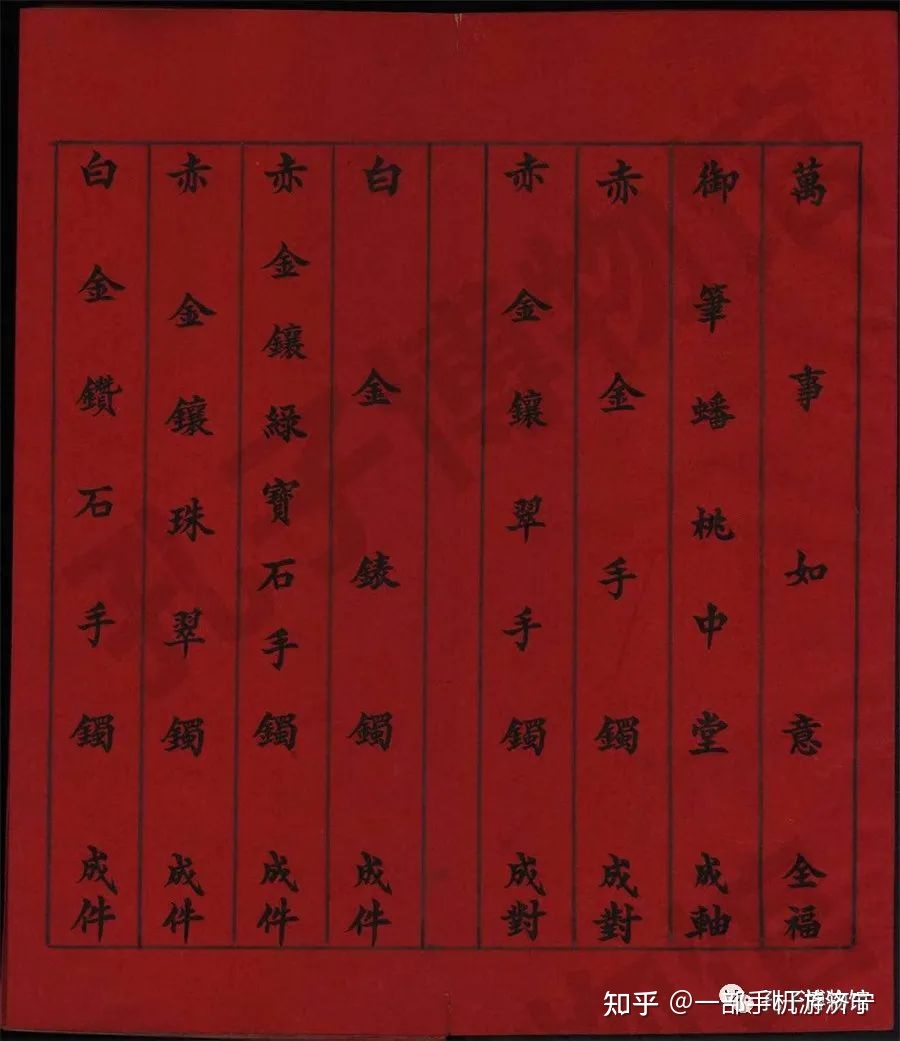 萬事如意全福
御筆蟠桃中堂成軸
赤金手鐲成對
赤金鑲翠手鐲成對
白金錶鐲成件
赤金鑲綠寶石手鐲成件
赤金鑲珠翠鐲成件
白金鑽石手鐲成件
孔子博物馆
知乎 @一部手机游济宁